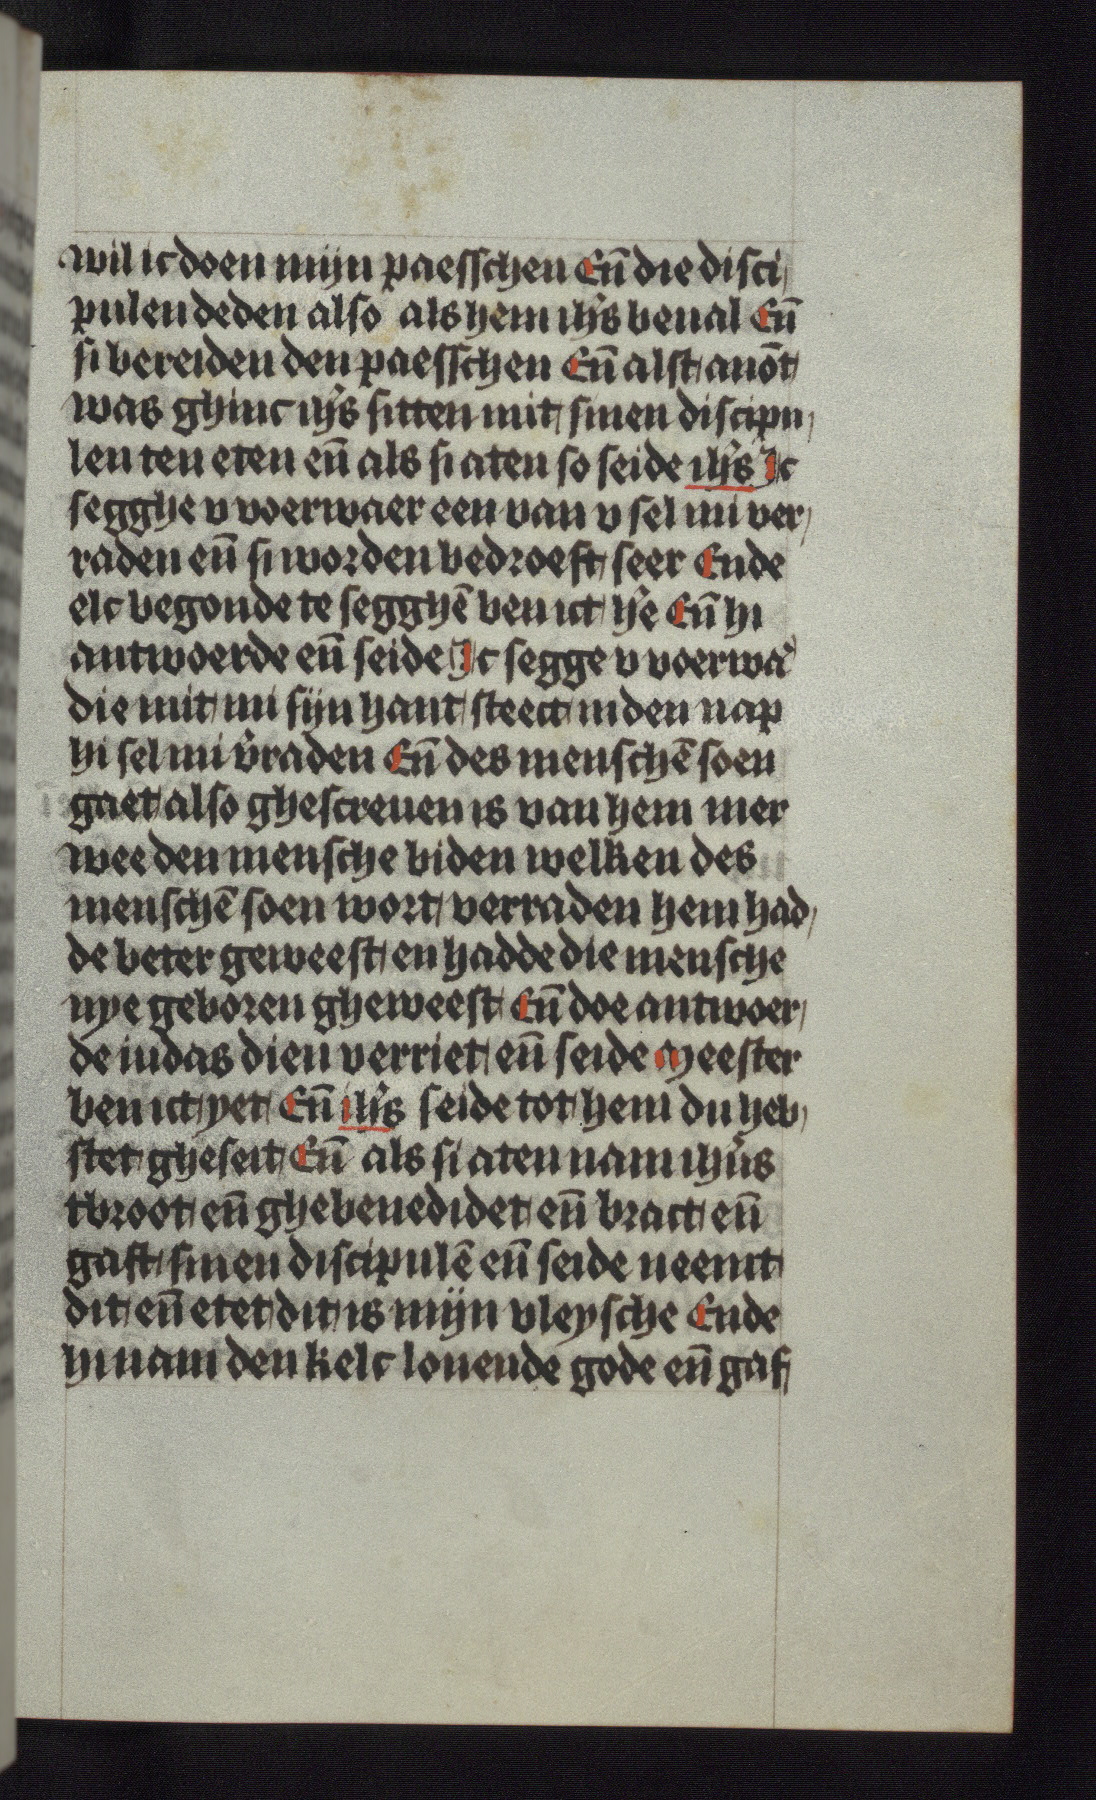 wil ic doen mijn paesschen Eñ die disci,
pulen deden also als hem ihs beual Eñ
si bereiden den paesschen Eñ alst auōt
was ghinc ihs sitten mit sinen discipu,
len ten eten eñ als si aten so seide ihs Ic
segghe v voerwaer een van v sel mi ver,
raden eñ si worden bedroeft seer Ende
elc begonde te segghē ben ict he Eñ hi
antwoerde eñ seide Ic segge v voerwa
die mit mi sijn hant steect inden nap
hi sel mi v̄raden Eñ des menschē soen
gaet also ghescreuen is van hem mer
wee den mensche biden welken des
menschē soen wort verraden hem had,
de beter geweest en hadde die mensche
nye geboren gheweest Eñ doe antwoer,
de iudas dien verriet eñ seide Meester
ben ict yet Eñ ihs seide tot hem du heb,
stet gheseit Eñ als si aten nam ihūs
tbroot eñ ghebenedidet eñ bract eñ
gaft sinen discipulē eñ seide neemt
dit eñ etet dit is mijn vleysche Ende
hi nam den kelc louende gode eñ gaf